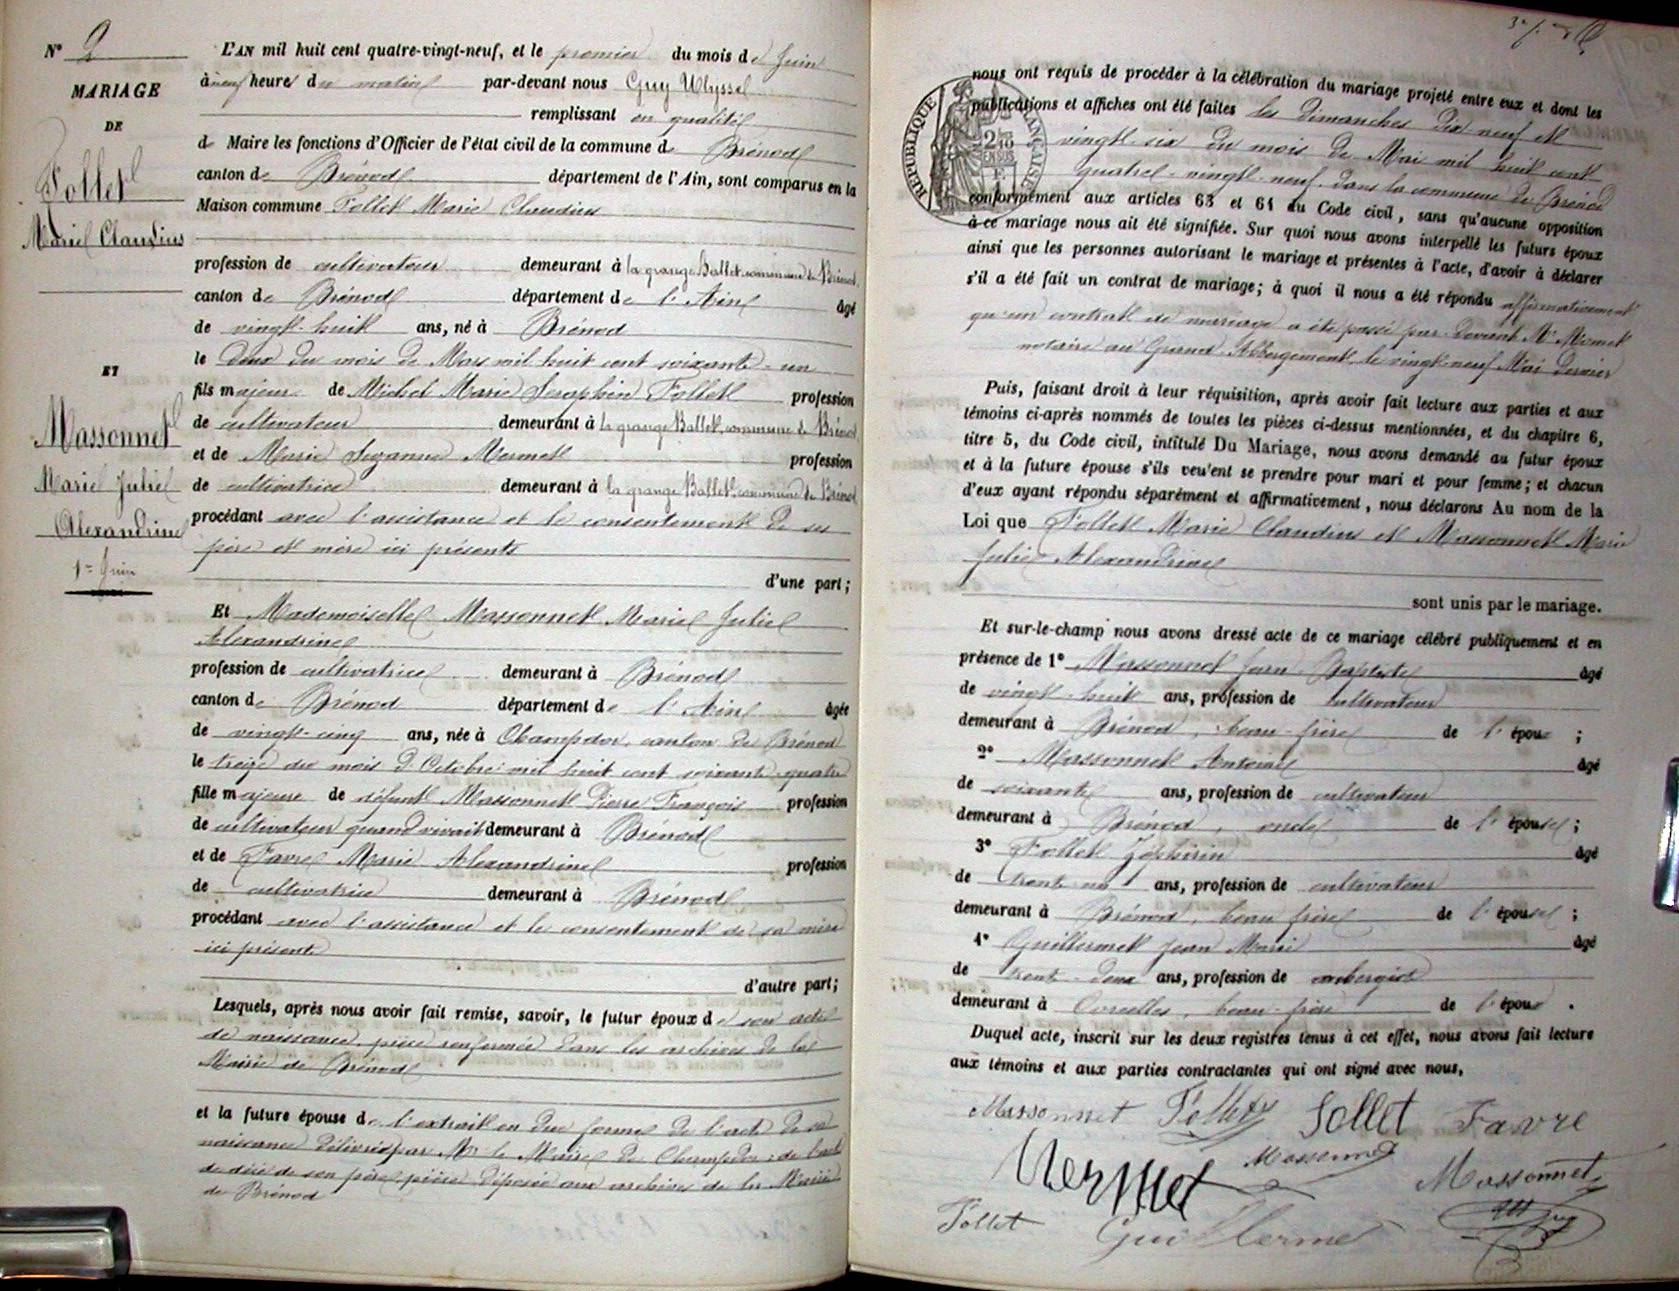 N° 2
MARIAGE
DE
Follet
Marie Claudius
ET
Massonnet
Marie Julie
Alexandrine
1er Juin
L'AN mil huit cent quatre-vingt-neuf, et le premier du mois de Juin
à neuf heure du matin par-devant nous Guy Ulysse
remplissant en qualité
de Maire les fonctions d'Officier de l'état civil de la commune de Brénod
canton de Brénod département de l'Ain, sont comparus en la
Maison commune Follet Marie Claudius
profession de cultivateur demeurant à la grange Ballet, commune de Brénod,
canton de Brénod département de l'Ain âgé
de vingt-huit ans, né à Brénod
le deux du mois de Mars mil huit cent soixante-un
fils majeur de Michel Marie Seraphin Follet profession
de cultivateur demeurant à la grange Ballet, commune de Brénod
et de Marie Suzanne Mermet profession
de cultivatrice demeurant à la grange Ballet, commune de Brénod
procédant avec l'assistance et le consentement de ses
père et mère ici présents
d'une part;
Et Mademoiselle Massonnet Marie Julie
Alexandrine
profession de cultivatrice demeurant à Brénod
canton de Brénod département de l'Ain âgée
de vingt-cinq ans, née à Champdor, canton de Brénod
le treize du mois d'Octobre mil huit cent soixante-quatre
fille majeure de défunt Massonnet Pierre François profession
de cultivateur quand vivait demeurant à Brénod
et de Favre Marie Alexandrine profession
de cultivatrice demeurant à Brénod
procédant avec l'assistance et le consentement de sa mère
ici présente
d'autre part;
Lesquels, après nous avoir fait remise, savoir, le futur époux de son acte
de naissance, pièce renfermée dans les archives de la
Mairie de Brénod
et la future épouse de l'extrait en due forme de l'acte de sa
naissance délivré par Mr le Maire de Champdor; de l'acte
de décè de son père, pièce déposée aux archives de la Mairie
de Brénod
REPUBLIQUE FRANÇAISE
nous ont requis de procéder à la célébration du mariage projeté entre eux et dont les
publications et affiches ont été faites les dimanches dix neuf et
vingt-six du mois de Mai mil huit cent
quatre-vingt-neuf dans la commune de Brénod
conformément aux articles 63 et 64 du Code civil, sans qu'aucune opposition
à ce mariage nous ait été signifiée. Sur quoi nous avons interpellé les futurs époux
ainsi que les personnes autorisant le mariage et présentes à l'acte, d'avoir à déclarer
s'il a été fait un contrat de mariage; à quoi il nous a été répondu affirmativement
qu'un contrat de mariage a été passé par devant Me
notaire au Grand Abbergement le vingt-neuf Mai dernier
Puis, faisant droit à leur réquisition, après avoir fait lecture aux parties et aux
témoins ci-après nommés de toutes les pièces ci-dessus mentionnées, et du chapitre 6,
titre 5, du Code civil, intitulé Du Mariage, nous avons demandé au futur époux
et à la future épouse s'ils veu'ent se prendre pour mari et pour femme; et chacun
d'eux ayant répondu séparément et affirmativement, nous déclarons Au nom de la
Loi que Follet Marie Claudius et Massonnet Marie
Julie Alexandrine
sont unis par le mariage.
Et sur-le-champ nous avons dressé acte de ce mariage célébré publiquement et en
présence de 1° Massonnet Jean Baptiste âgé
de vingt-huit ans, profession de cultivateur
demeurant à Brénod, beau-frère de l'époux ;
2° Massonnet Antoine âgé
de soixante ans, profession de cultivateur
demeurant à Brénod, oncle de l'épouse ;
3° Follet Zéphirin âgé
de trente un ans, profession de cultivateur
demeurant à Brénod, beau frère de l'épouse ;
4° Guillermet Jean Marie âgé
de trente-deux ans, profession de aubergiste
demeurant à Corcelles, beau-frère de l'époux .
Duquel acte, inscrit sur les deux registres tenus à cet effet, nous avons fait lecture
aux témoins et aux parties contractantes qui ont signé avec nous,
Massonnet Follet Follet Favre
Mermet Massonnet Massonnet
Follet Guillermet